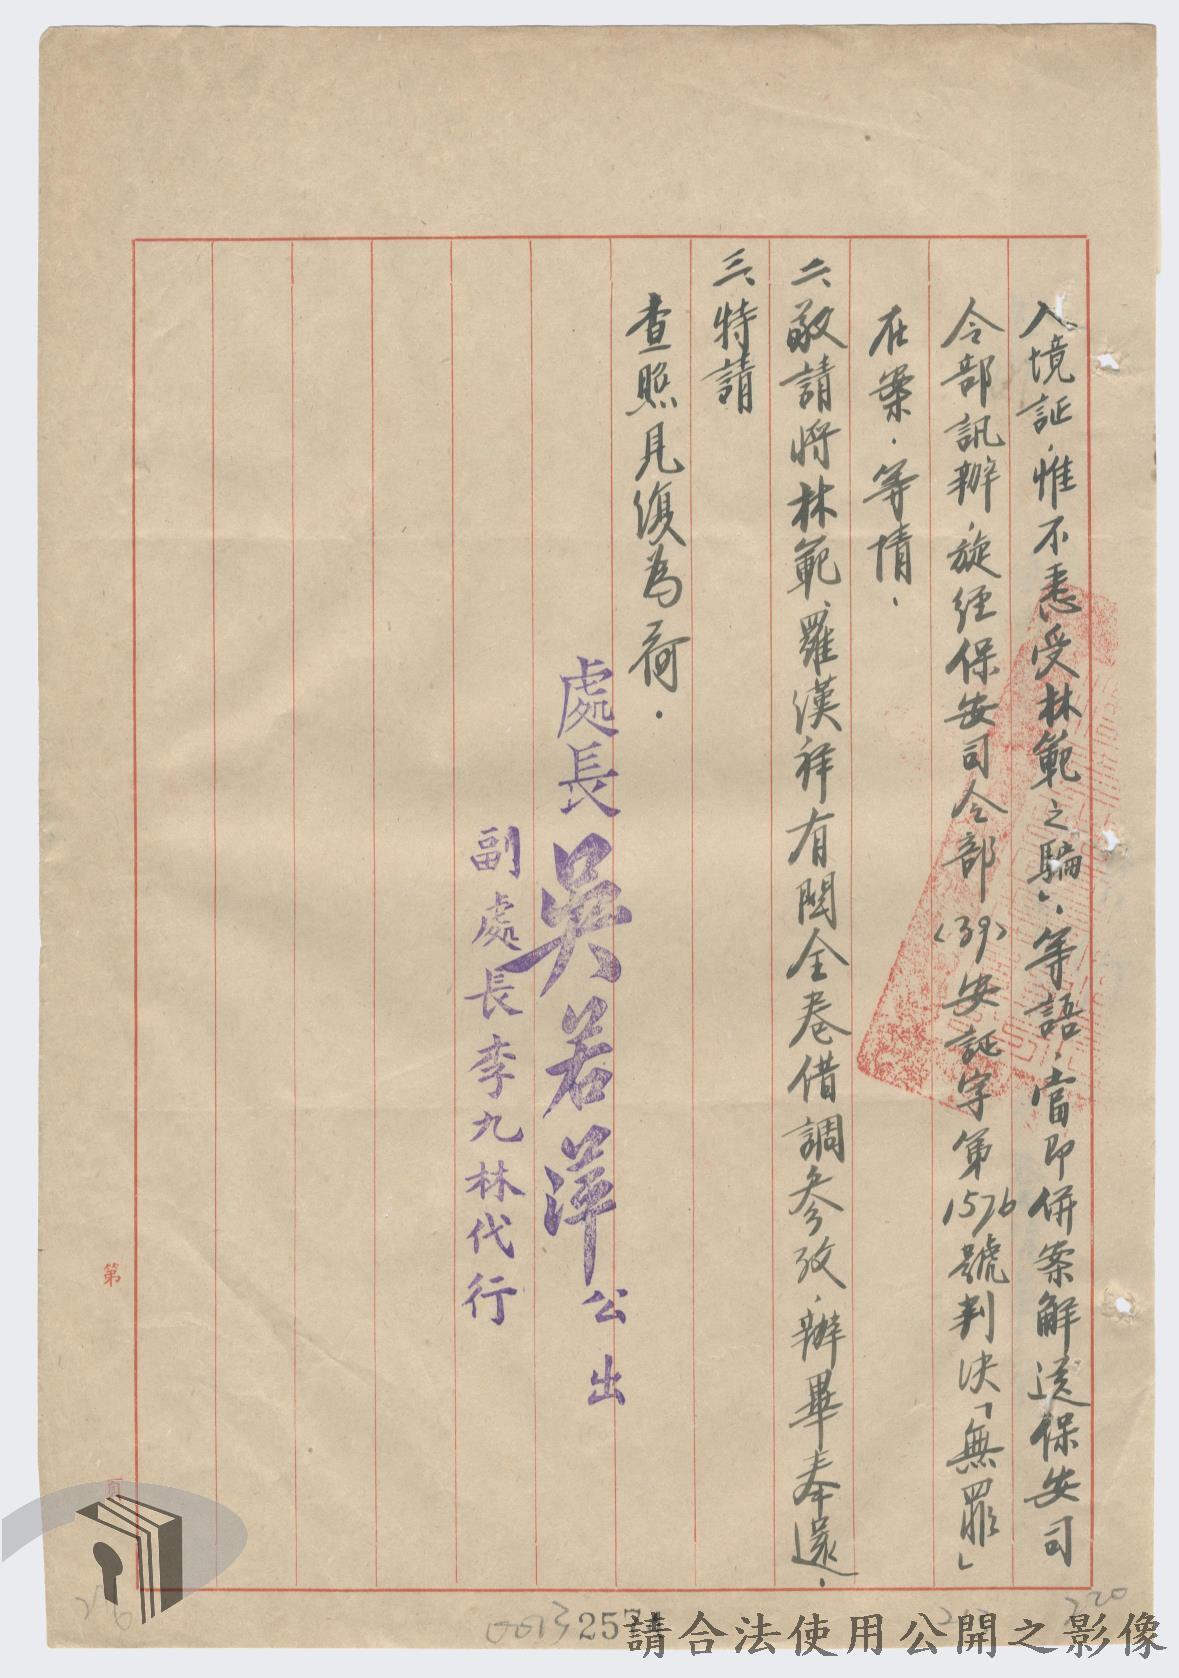 入境証，惟不悉受林範之騙」，等語，當即併案解送保安司
令部訊辦，旋經保安司令部(39)安証字第1576號判決「無罪」
在案．等情．
二、敬請將林範、羅漢祥有関全卷借調參攷，辦畢奉還．
三、特請
查照見復為荷．
處長吳若萍公出
副處長李九林代行
第
頁
320
216
0013257
請合法使用公開之影像